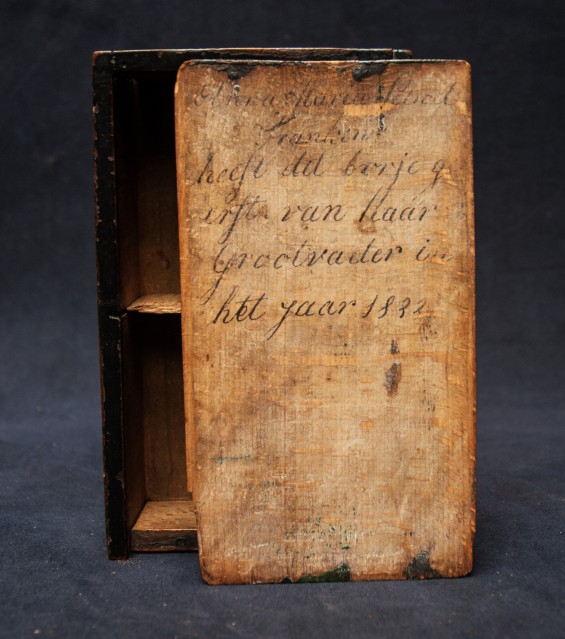 Anna Maria
heeft dit borje g
erft van haar
Grootvaeter in
het jaar 1832